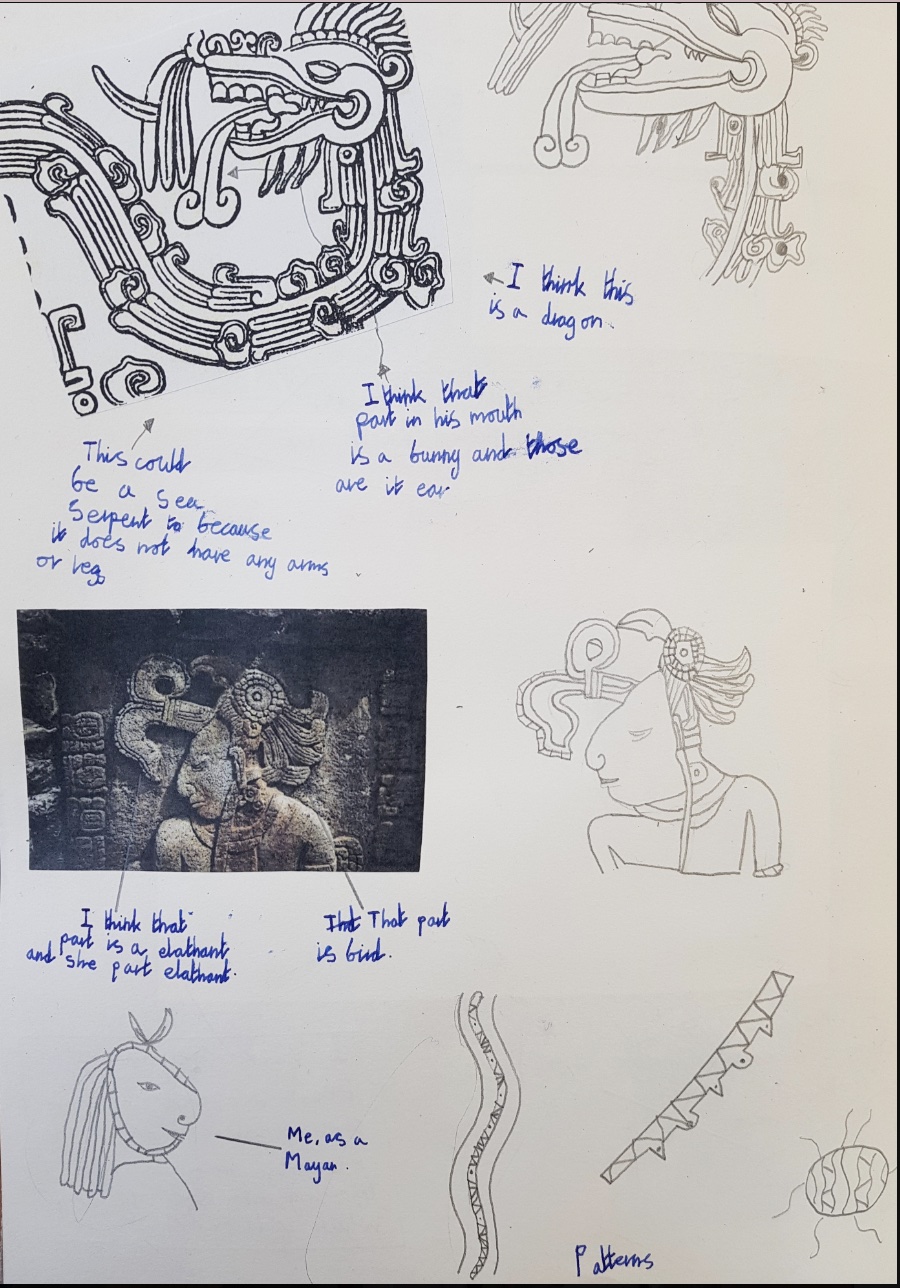 I think this
is a dragon.
I think that
part in his mouth
is a bunny and those
are it ear
This could
be a sea
Serpent to because
it does not have any arms
or leg
I think that
part is a elathant
and she part elathant.
That part
is bird.
Me, as a
Mayan.
Patterns